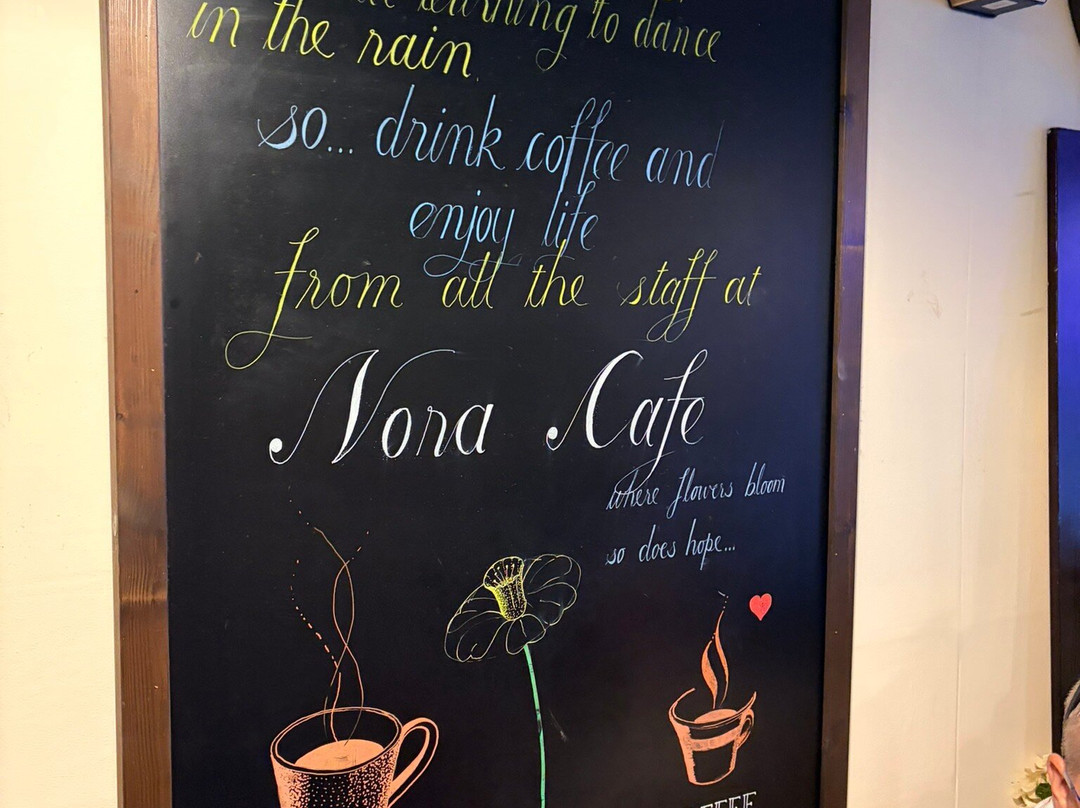 learning to dance
in the rain.
so... drink coffee and
enjoy life
from all the staff at
Nora Cafe
where flowers bloom
so does hope...